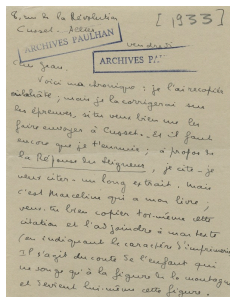 8, rue de la Révolution
[1933]
Cusset. Allier.
ARCHIVES PAULHAN
vendredi
ARCHIVES PAUL
Jean,
Voici ma chronique : je l'ai recopiée
mais je la corrigerai sur
les épreuves, si tu veux bien me les
faire envoyer à Cusset. Et il faut
encore que je t'ennuie ; à propos de
la Réponse du Seigneur, je cite – je
veux citer – un long extrait, mais
c'est Marceline qui a mon livre ;
veux-tu bien copier toi-même cette
citation et l'adjoindre à mon texte
(en indiquant le caractère d'imprimerie)
Il s'agit du conte de l'enfant qui
ne songe qu'à la figure de la montagne
et devient lui-même cette figure.